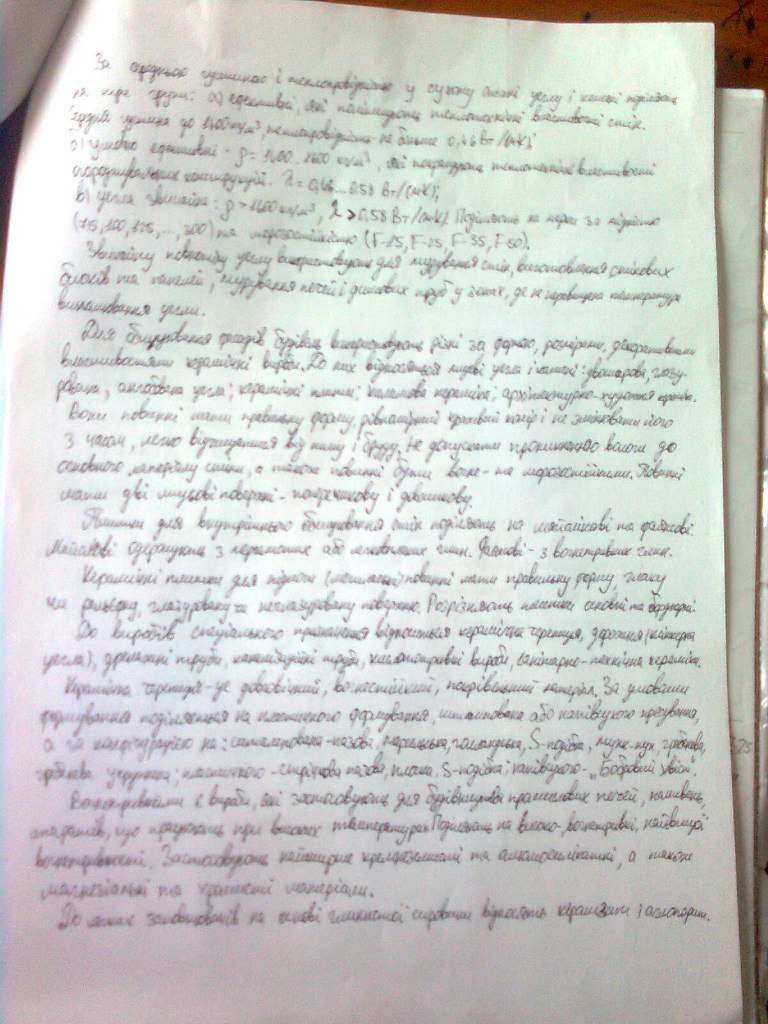 За середньою густиною і теплопровідністю у сухому стані цеглу і камені поділяють
на три групи: а) ефективні, які поліпшують теплотехнічні властивості стін.
густина до 1400 кг/м³, теплопровідність не більше 0,46 Вт/(мК);
б) умовно ефективні - ρ = 1400..1600 кг/м³, які покращують теплотехнічні властивості
огороджувальних конструкцій. λ = 0,46...0.58 Вт/(мК);
в) цегла звичайна: ρ > 1600 кг/м³, λ > 0,58 Вт/(мК) Поділяють на марки за міцністю
(75, 100, 125, ..., 300) та морозостійкістю (F-15, F-25, F-35, F-50).
Звичайну повнотілу цеглу використовують для мурування стін, виготовлення стінових
блоків та панелей, мурування печей і димових труб у зонах, де не перевищена температура
цегли.
Для облицювання фасадів будівель використовують різні за формою, розмірами, декоративними
властивостями керамічні вироби. До них відносяться лицеві цегла і камені: двошарова, глазу-
рована, ангобована цегла; керамічні плитки; килимова кераміка; архітектурно-художня кераміка.
Вони повинні мати правильну форму, рівномірний колір і не змінювати його
з часом, легко відчищатися від пилу і бруду. Не допускати проникнення вологи до
основного матеріалу стіни, а також повинні бути вогне- та морозостійкими. Повинні
мати дві лицьові поверхні - поперечникову і довжикову.
Плитки для внутрішнього облицювання стін поділяють на майолікові та фаянсові.
одержують з керамічних або легкоплавких глин. Фаянсові - з вогнетривких глин.
Керамічні плитки для підлоги повинні мати правильну форму, гладку
чи рельєфну, глазуровану чи неглазуровану поверхню. Розрізняють плитки основні та бордюрні.
До виробів спеціального призначення відносяться керамічна черепиця, дорожня (клінкерна
цегла), дренажні труби, каналізаційні труби, кислототривкі вироби, санітарно-технічна кераміка.
Керамічна черепиця - це довговічний, вогнестійкий, покрівельний матеріал. За умовами
формування поділяється на пластичного формування, штампована або напівсухого пресування,
а за конфігурацією на: штампована-пазова, марсельська, голландська, S-подібна, гребнева,
пластичного - стрічкова пазова, плоска. S-подібна; напівсухого - „Бобровий хвіст".
Вогнетривкими є вироби, які застосовують для будівництва промислових печей,
апаратів, що працюють при високих температурах. Поділяють на високо-вогнетривкі, найвищої
вогнетривкості. Застосовують найширше кремнеземисті та алюмосилікатні, а також
магнезіальні та хромисті матеріали.
До легких заповнювачів на основі глинистої сировини відносять керамзити і аглопорит.